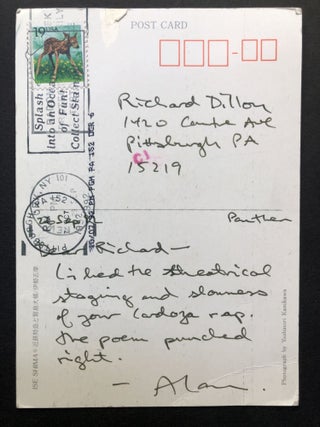 POST CARD
19
USA
Splash
Into an Ocean
of Fun!
Collect Stamps
Richard Dillon
1420 Centre Ave
Pittsburgh PA
15219
NY 101
26 Sep
Panther
Dear Richard—
Liked the theatrical
staging and slowness
of your Cardoza rap.
The poem punched
right.
— Alan.
ISE SHIMA
Photograph by Yoshinori Kanikawa